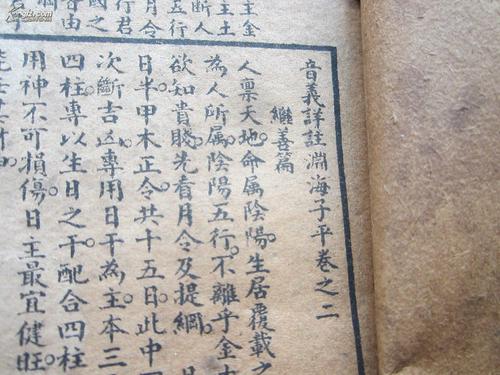 音義詳註淵海子平卷之二
繼善篇
人禀天地命属陰陽。生居覆載之
為人所属陰陽五行。不離乎金
欲知貴賤先看月令及提綱。
日半甲木正令共十五日。此中
次斷吉凶專用日干為主本三
四柱專以生日之干配合四柱
用神不可損傷日主最宜健旺。
主金
主土
断人
五行
月令
行君
國之